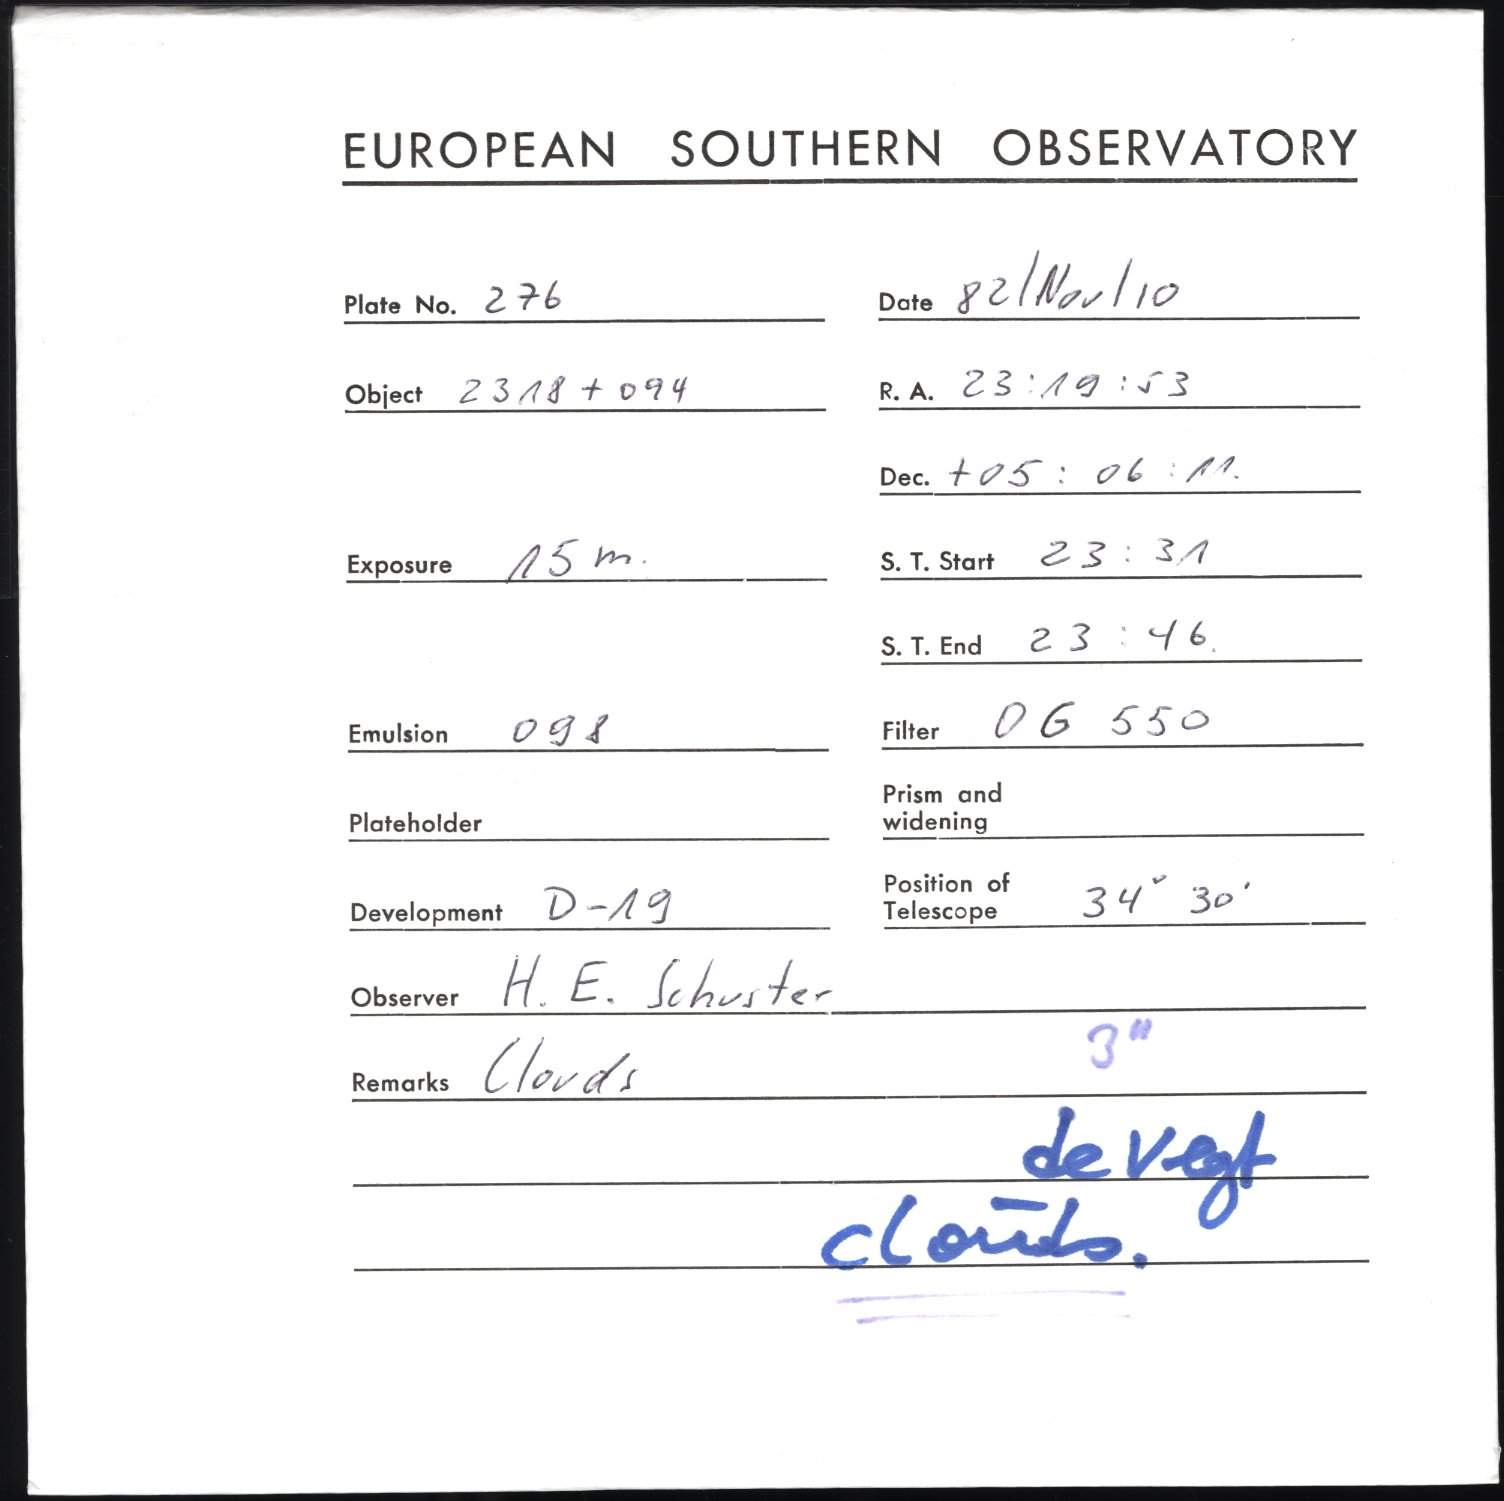 EUROPEAN SOUTHERN OBSERVATORY
Plate No. 276
Date 82/Nov/10
Object 2318+094
R. A. 23:19:53
Dec. +05:06:11.
Exposure 15 m.
S. T. Start 23:31
S. T. End 23:46.
Emulsion 098
Filter OG 550
Plateholder
Prism and
widening
Development D-19
Position of
Telescope 34° 30'
Observer H. E. Schuster
3"
Remarks Clouds
de Vegt
clouds.